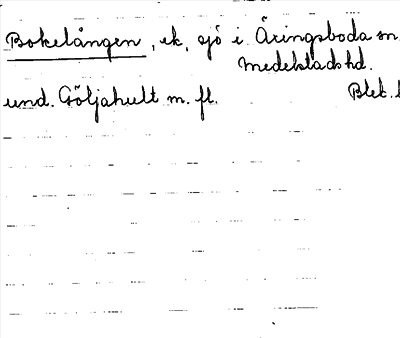 Bokelången, ek, sjö i Äringsboda sn
Medelstads hd.
und. Göljahult m. fl. Blek.